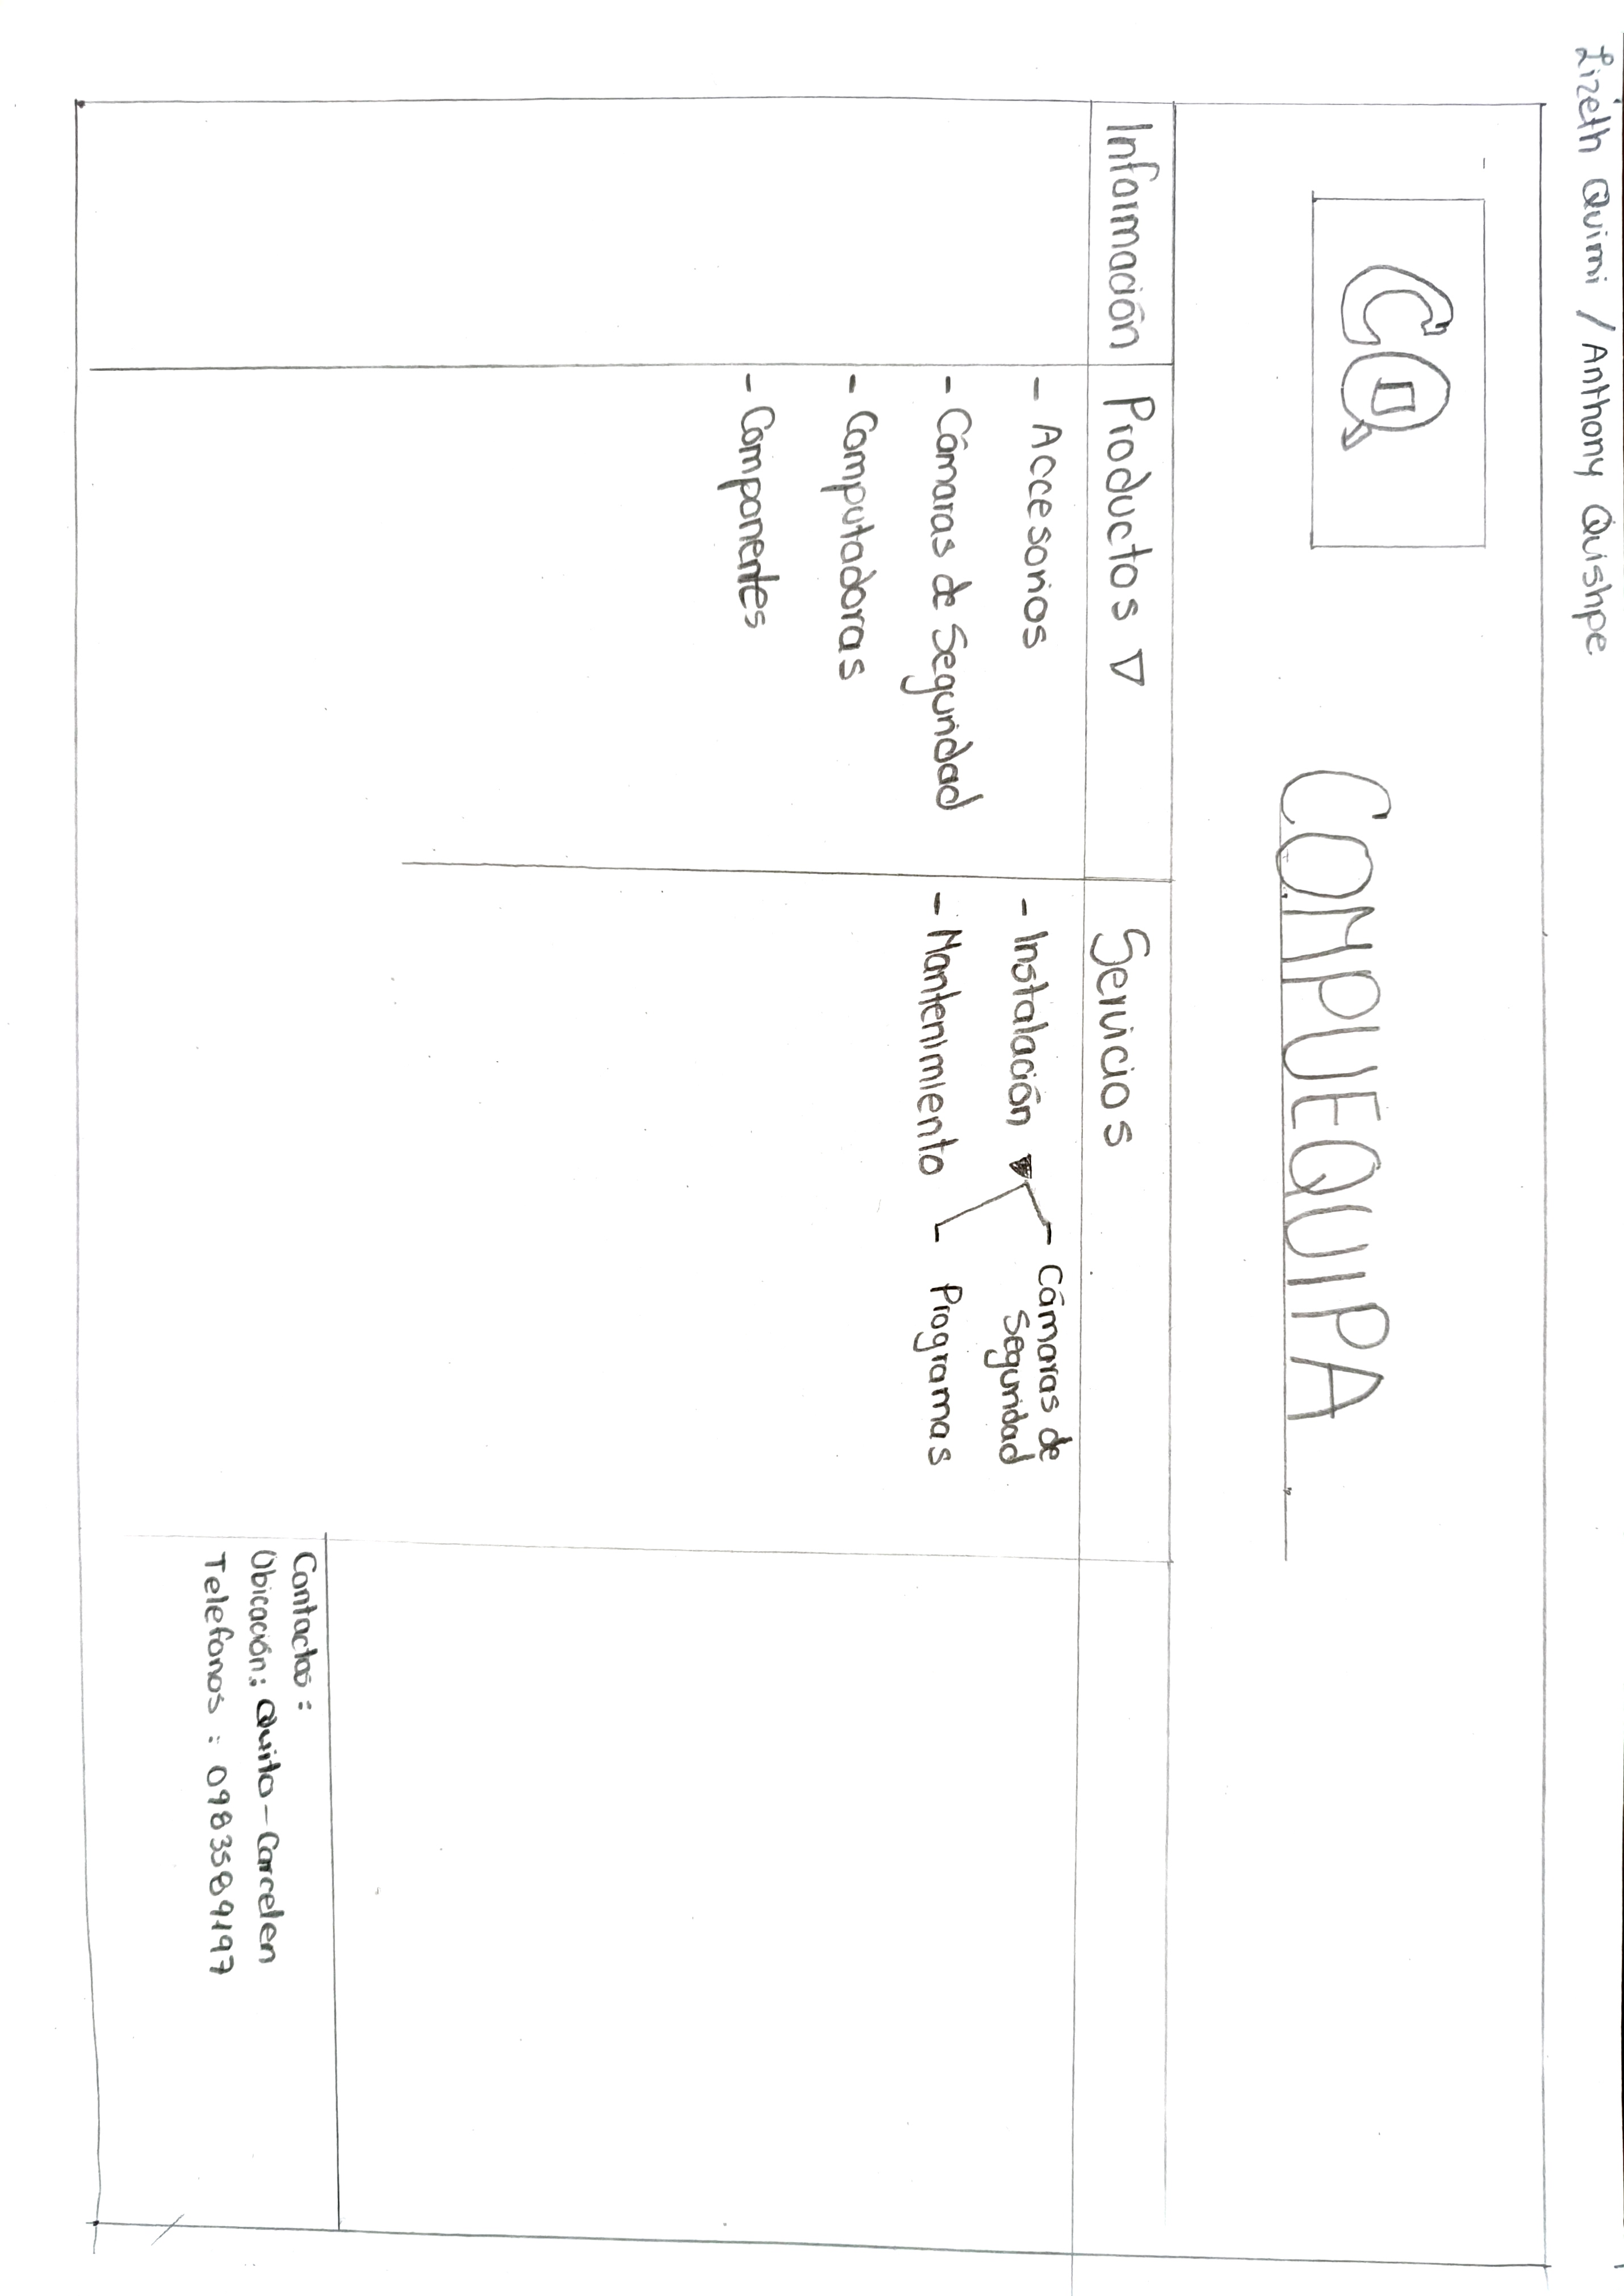 Lizeth Quimi / Anthony Quishpe
CQ
COMPUEQUIPA
Información
Productos
Servicios
- Accesorios
- Cámaras de Seguridad
- Computadoras
- Componentes
- Instalación
- Mantenimiento
- Cámaras de
Seguridad
- Programas
Contactos:
Ubicación: Quito-Carcelen
Telefonos : 0983589197